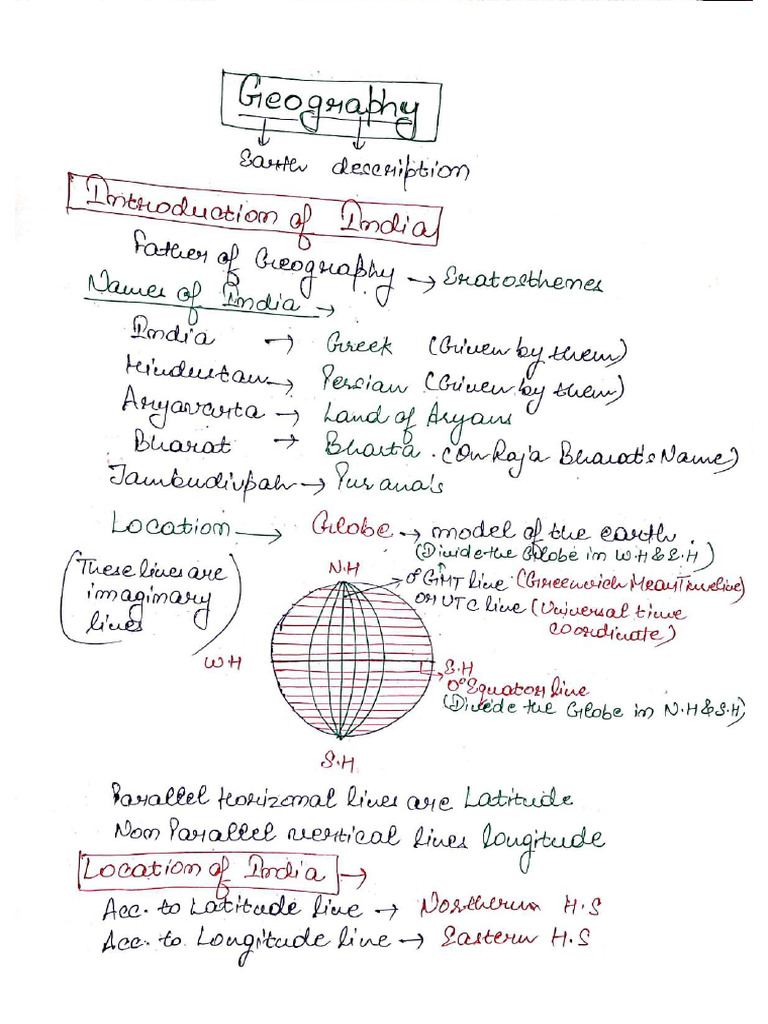 Geography
Earth description
Introduction of India
Father of Geography → Eratosthenes
Names of India →
India → Greek (Given by them)
Hindustan → Persian (Given by them)
Aryavarta → Land of Aryans
Bharat → Bharta. (On Raja Bharat's Name)
Jambudivpah → Purana's
Location → Globe → model of the earth.
(Divide the Globe in W.H & S.H)
(These lines are imaginary lines)
N.H
0° GMT line (Greenwich Mean Timeline)
or UTC line (Universal time coordinate)
W.H
S.H
0° Equator line
(Divide the Globe in N.H & S.H)
S.H
Parallel Horizonal lines are Latitude
Non Parallel vertical lines longitude
Location of India →
Acc. to Latitude line → Northern H.S
Acc. to Longitude line → Eastern H.S